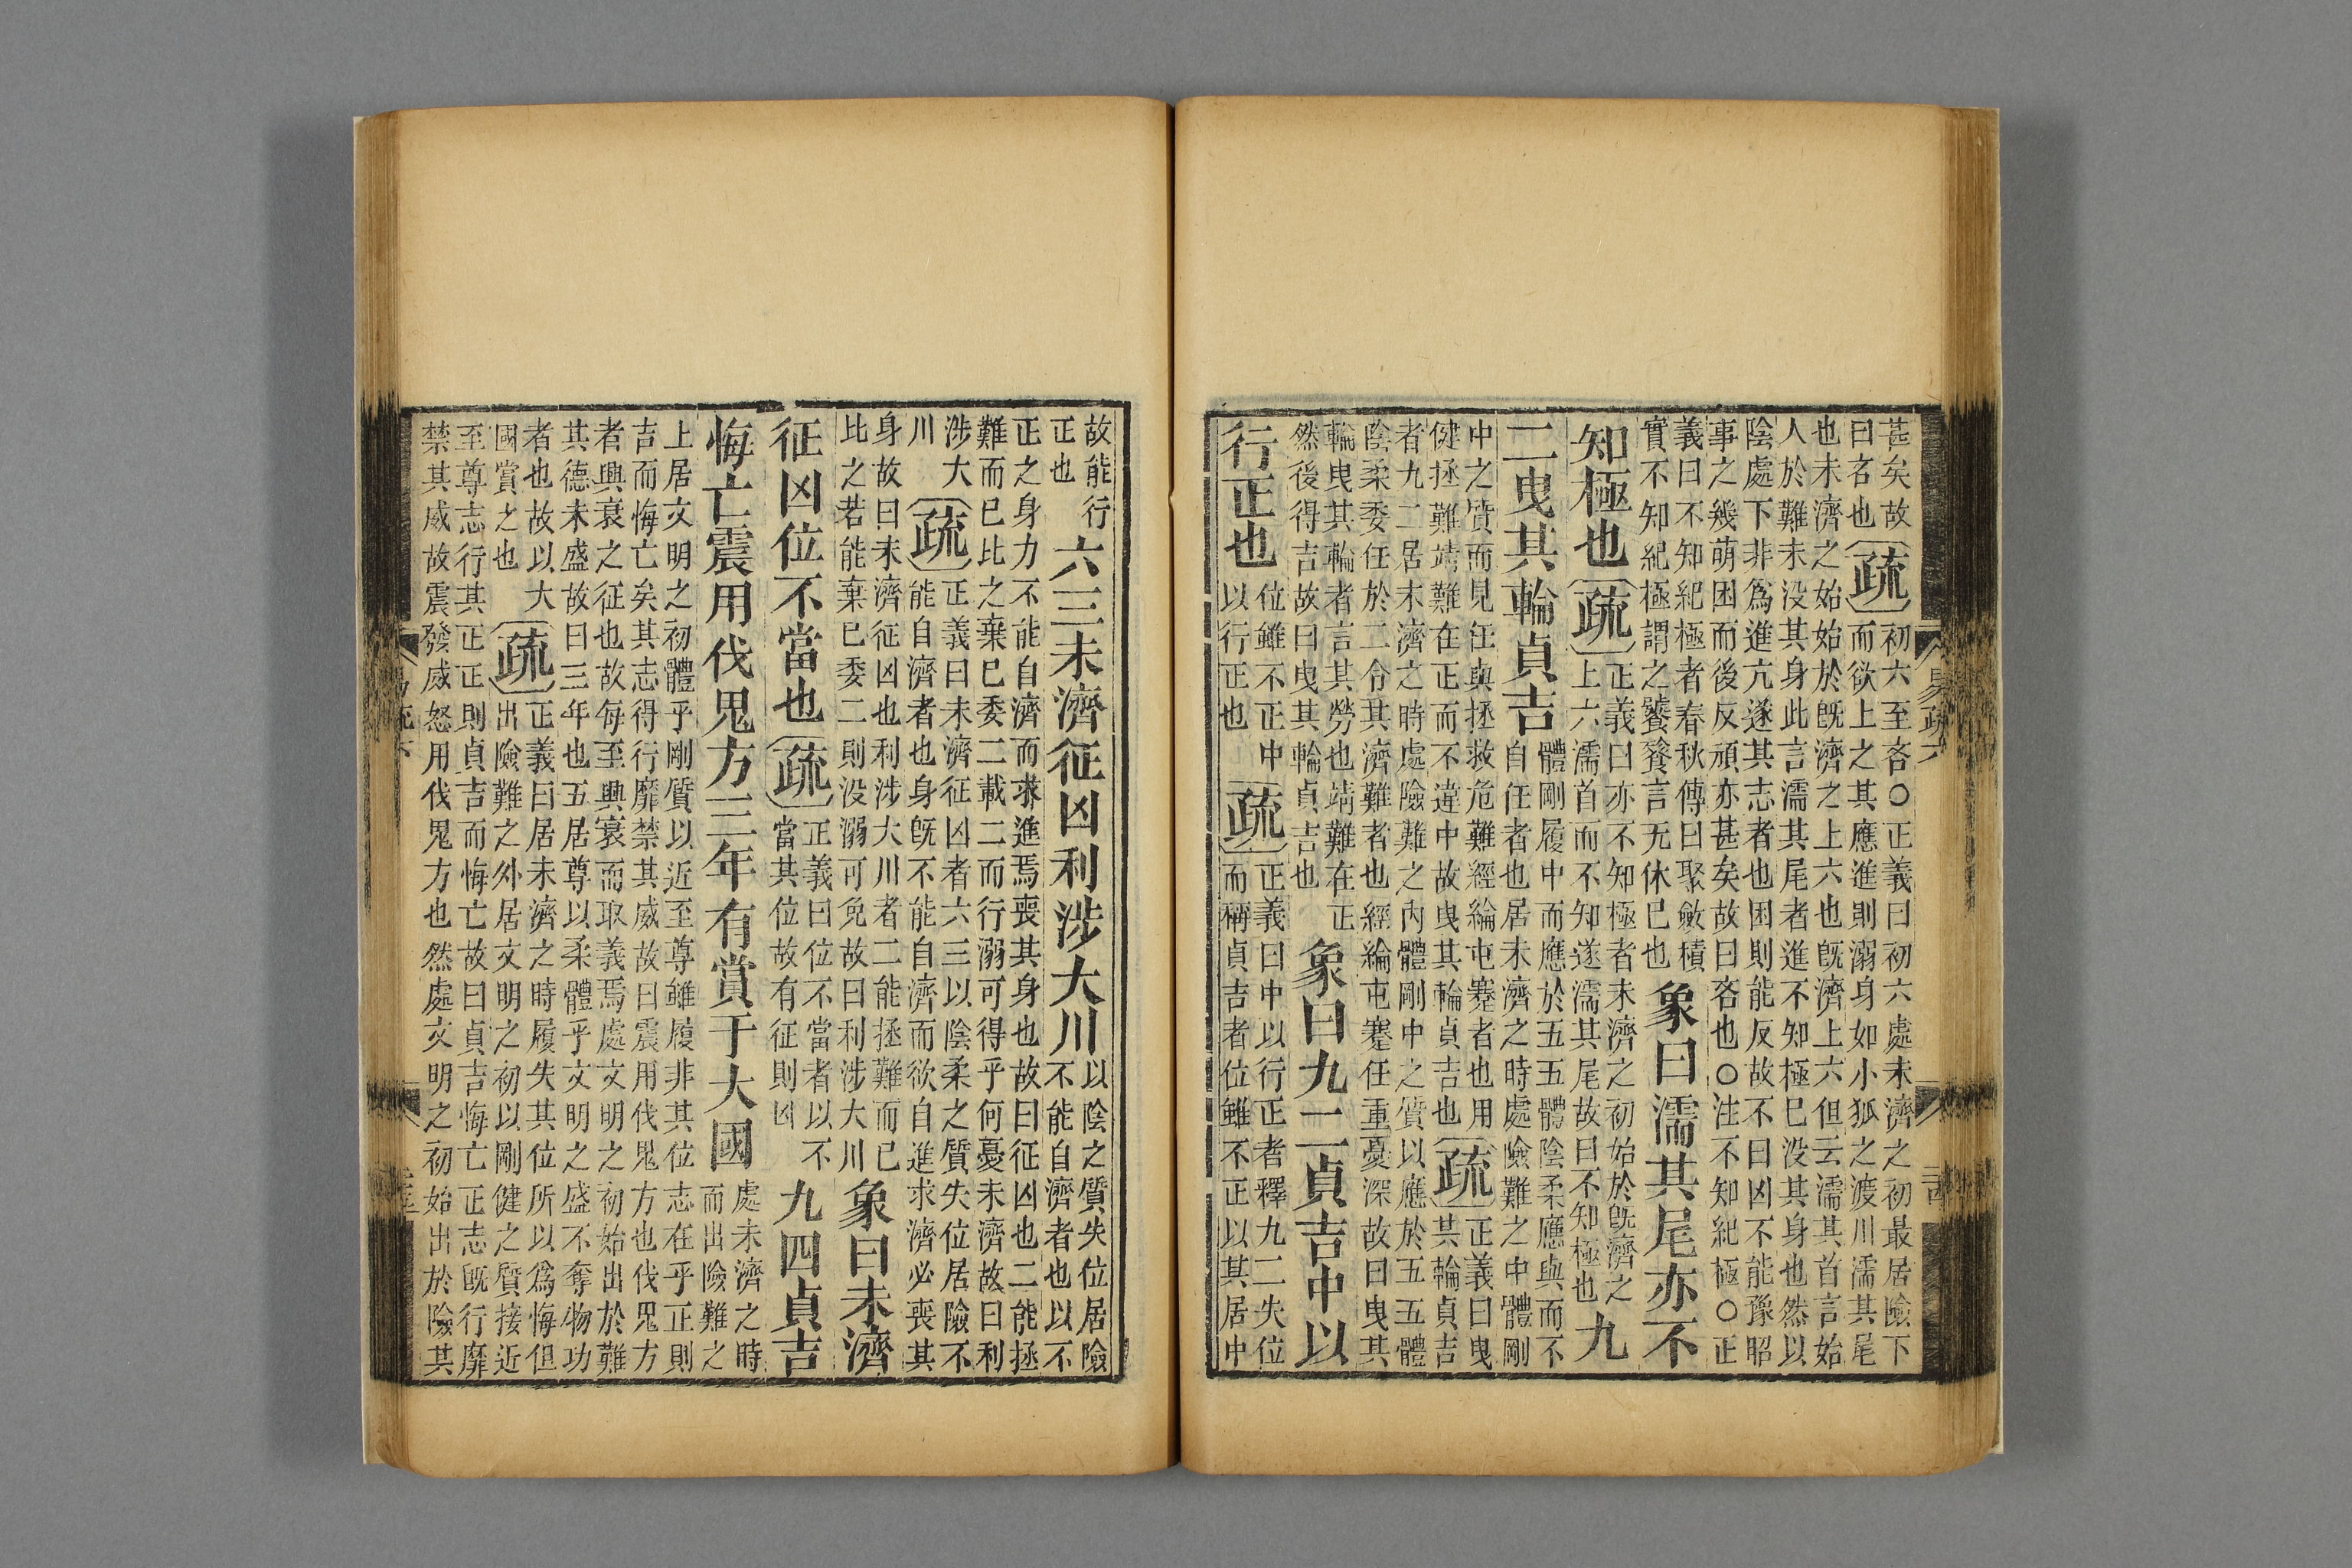 甚矣故
曰吝也
疏
初六至吝○正義曰初六處未濟之初最居險下
而欲上之其應進則溺身如小狐之渡川濡其尾
也未濟之始始於旣濟之上六也旣濟上六但云濡其首言始
人於難未没其身此言濡其尾者進不知極已没其身也然以
陰處下非爲進亢遂其志者也困則能反故不曰凶不能豫昭
事之幾萌困而後反頑亦甚矣故曰吝也○注不知紀極○正
義曰不知紀極者春秋傳曰聚斂積
實不知紀極謂之饕餮言无休已也
象曰濡其尾亦不
知極也
疏
正義曰亦不知極者未濟之初始於旣濟之
上六濡首而不知遂濡其尾故曰不知極也
九
二曳其輪貞吉
體剛履中而應於五五體陰柔應與而不
自任者也居未濟之時處險難之中體剛
中之質而見任與拯救危難經綸屯蹇者也用
健拯難靖難在正而不違中故曳其輪貞吉也
疏
正義曰曳
其輪貞吉
者九二居未濟之時處險難之内體剛中之質以應於五五體
陰柔委任於二令其濟難者也經綸屯蹇任重憂深故曰曳其
輪曳其輪者言其勞也靖難在正
然後得吉故曰曳其輪貞吉也
象曰九二貞吉中以
行正也
位雖不正中
以行正也
疏
正義曰中以行正者釋九二失位
而稱貞吉者位雖不正以其居中
故能行
正也
六三未濟征凶利涉大川
以陰之質失位居險
不能自濟者也以不
正之身力不能自濟而求進焉喪其身也故曰征凶也二能拯
難而已比之棄已委二載二而行溺可得乎何憂未濟故曰利
涉大
川
疏
正義曰未濟征凶者六三以陰柔之質失位居險不
能自濟者也身旣不能自濟而欲自進求濟必喪其
身故曰未濟征凶也利涉大川者二能拯難而已
比之若能棄已委二則没溺可免故曰利涉大川
象曰未濟
征凶位不當也
疏
正義曰位不當者以不
當其位故有征則凶
九四貞吉
悔亡震用伐鬼方三年有賞于大國
處未濟之時
而出險難之
上居文明之初體乎剛質以近至尊雖履非其位志在乎正則
吉而悔亡矣其志得行靡禁其威故曰震用伐鬼方也伐鬼方
者興衰之征也故每至興衰而取義焉處文明之初始出於難
其德未盛故曰三年也五居尊以柔體乎文明之盛不奪物功
者也故以大
國賞之也
疏
正義曰居未濟之時履失其位所以爲悔但
出險難之外居文明之初以剛健之質接近
至尊志行其正正則貞吉而悔亡故曰貞吉悔亡正志旣行靡
禁其威故震發威怒用伐鬼方也然處文明之初始出於險其
易疏六